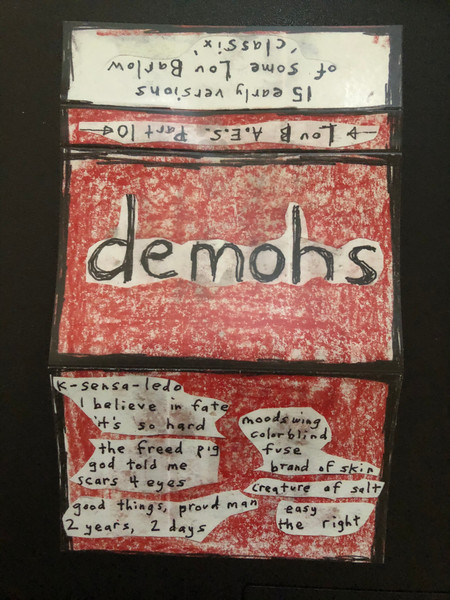 15 early versions
of some Lou Barlow
'classix'
Lou B A.E.S. Part 10
demohs
k-sensa-ledo
I believe in fate
it's so hard
the freed pig
god told me
scars 4 eyes
good things, proud man
2 years, 2 days
moodswing
colorblind
fuse
brand of skin
creature of salt
easy
the right